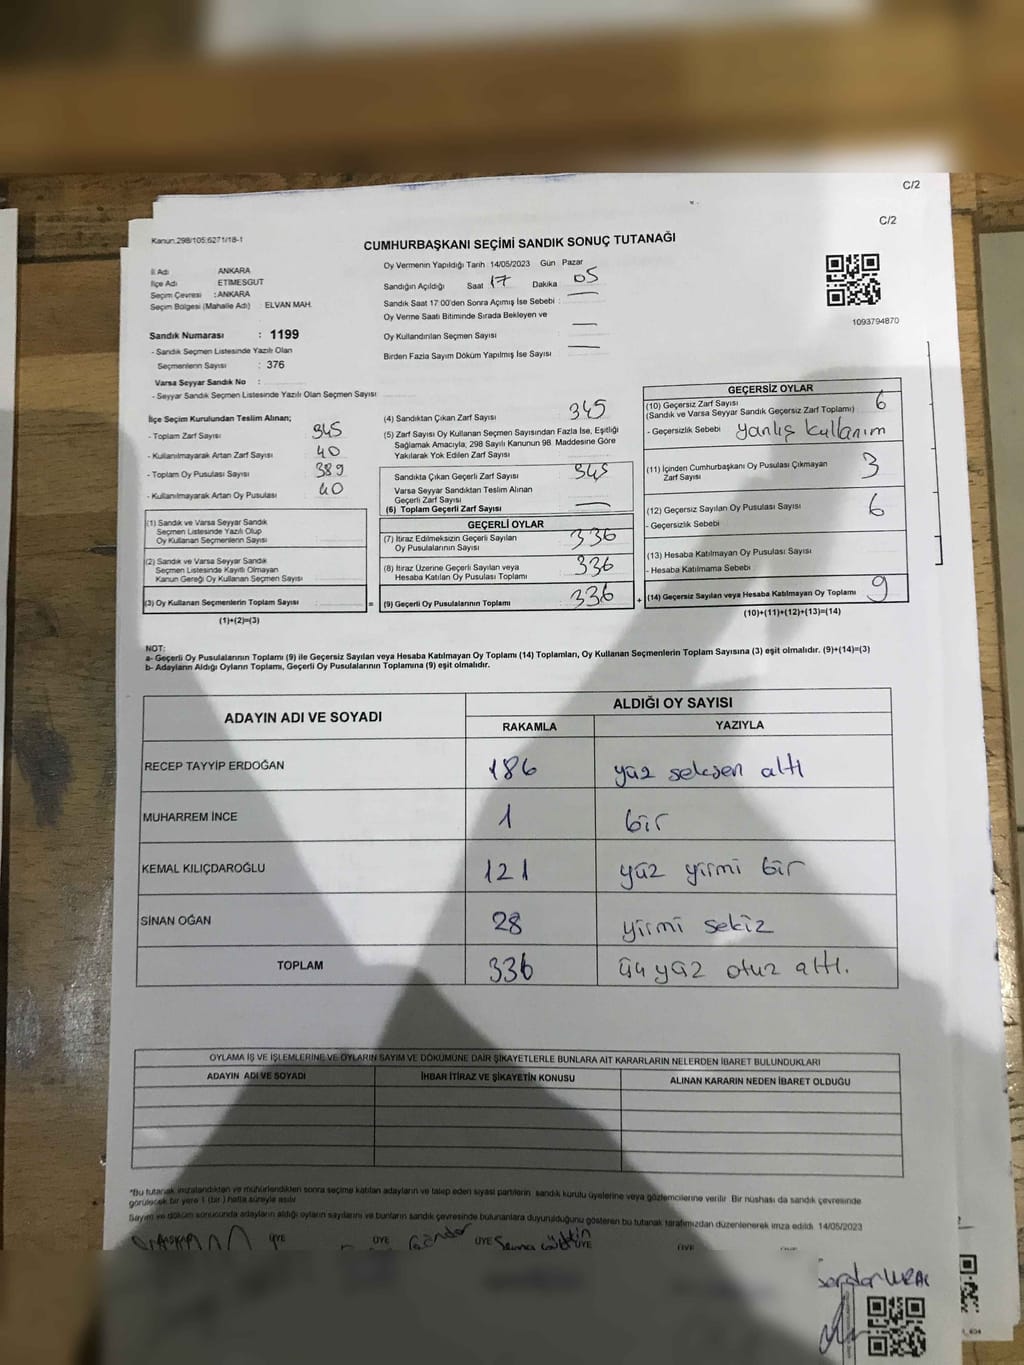 C/2
C/2
Kanun.298/105;6271/18-1
CUMHURBAŞKANI SEÇİMİ SANDIK SONUÇ TUTANAĞI
İl Adı ANKARA
İlçe Adı ETİMESGUT
Seçim Çevresi : ANKARA
Seçim Bölgesi (Mahalle Adı) : ELVAN MAH.
Sandık Numarası : 1199
- Sandık Seçmen Listesinde Yazılı Olan
Seçmenlerin Sayısı : 376
Varsa Seyyar Sandık No :
- Seyyar Sandık Seçmen Listesinde Yazılı Olan Seçmen Sayısı
Oy Vermenin Yapıldığı Tarih :14/05/2023 Gün Pazar
Sandığın Açıldığı Saat 17 Dakika 05
Sandık Saat 17:00'den Sonra Açımış İse Sebebi :
Oy Verme Saati Bitiminde Sırada Bekleyen ve
Oy Kullandırılan Seçmen Sayısı
Birden Fazla Sayım Döküm Yapılmış İse Sayısı
1093794870
İlçe Seçim Kurulundan Teslim Alınan;
- Toplam Zarf Sayısı 345
- Kullanılmayarak Artan Zarf Sayısı 40
- Toplam Oy Pusulası Sayısı 389
- Kullanılmayarak Artan Oy Pusulası 40
(1) Sandık ve Varsa Seyyar Sandık
Seçmen Listesinde Yazılı Olup
Oy Kullanan Seçmenlerin Sayısı
(2) Sandık ve Varsa Seyyar Sandık
Seçmen Listesinde Kayıtlı Olmayan
Kanun Gereği Oy Kullanan Seçmen Sayısı
(3) Oy Kullanan Seçmenlerin Toplam Sayısı =
(1)+(2)=(3)
(4) Sandıktan Çıkan Zarf Sayısı 345
(5) Zarf Sayısı Oy Kullanan Seçmen Sayısından Fazla İse, Eşitliği
Sağlamak Amacıyla, 298 Sayılı Kanunun 98. Maddesine Göre
Yakılarak Yok Edilen Zarf Sayısı
Sandıkta Çıkan Geçerli Zarf Sayısı 345
Varsa Seyyar Sandıktan Teslim Alınan
Geçerli Zarf Sayısı
(6) Toplam Geçerli Zarf Sayısı
GEÇERLİ OYLAR
(7) İtiraz Edilmeksizin Geçerli Sayılan
Oy Pusulalarının Sayısı 336
(8) İtiraz Üzerine Geçerli Sayılan veya
Hesaba Katılan Oy Pusulası Toplamı 336
(9) Geçerli Oy Pusulalarının Toplamı 336 +
GEÇERSİZ OYLAR
(10) Geçersiz Zarf Sayısı
(Sandık ve Varsa Seyyar Sandık Geçersiz Zarf Toplamı) 6
- Geçersizlik Sebebi yanlış kullanım
(11) İçinden Cumhurbaşkanı Oy Pusulası Çıkmayan
Zarf Sayısı 3
(12) Geçersiz Sayılan Oy Pusulası Sayısı 6
- Geçersizlik Sebebi
(13) Hesaba Katılmayan Oy Pusulası Sayısı
- Hesaba Katılmama Sebebi
(14) Geçersiz Sayılan veya Hesaba Katılmayan Oy Toplamı 9
(10)+(11)+(12)+(13)=(14)
NOT:
a- Geçerli Oy Pusulalarının Toplamı (9) ile Geçersiz Sayılan veya Hesaba Katılmayan Oy Toplamı (14) Toplamları, Oy Kullanan Seçmenlerin Toplam Sayısına (3) eşit olmalıdır. (9)+(14)=(3)
b- Adayların Aldığı Oyların Toplamı, Geçerli Oy Pusulalarının Toplamına (9) eşit olmalıdır.
ADAYIN ADI VE SOYADI ALDIĞI OY SAYISI
RAKAMLA YAZIYLA
RECEP TAYYİP ERDOĞAN 186 yüz seksen altı
MUHARREM İNCE 1 bir
KEMAL KILIÇDAROĞLU 121 yüz yirmi bir
SİNAN OĞAN 28 yirmi sekiz
TOPLAM 336 üç yüz otuz altı.
OYLAMA İŞ VE İŞLEMLERİNE VE OYLARIN SAYIM VE DÖKÜMÜNE DAİR ŞİKAYETLERLE BUNLARA AİT KARARLARIN NELERDEN İBARET BULUNDUKLARI
ADAYIN ADI VE SOYADI İHBAR İTİRAZ VE ŞİKAYETİN KONUSU ALINAN KARARIN NEDEN İBARET OLDUĞU
*Bu tutanak imzalandıktan ve mühürlendikten sonra seçime katılan adayların ve talep eden siyasi partilerin sandık kurulu üyelerine veya gözlemcilerine verilir. Bir nüshası da sandık çevresinde
görülecek bir yere 1 (bir ) hafta süreyle asılır.
Sayım ve döküm sonucunda adayların aldığı oyların sayılarını ve bunların sandık çevresinde bulunanlara duyurulduğunu gösteren bu tutanak tarafımızdan düzenlenerek imza edildi. 14/05/2023
BAŞKAN ÜYE ÜYE ÜYE ÜYE